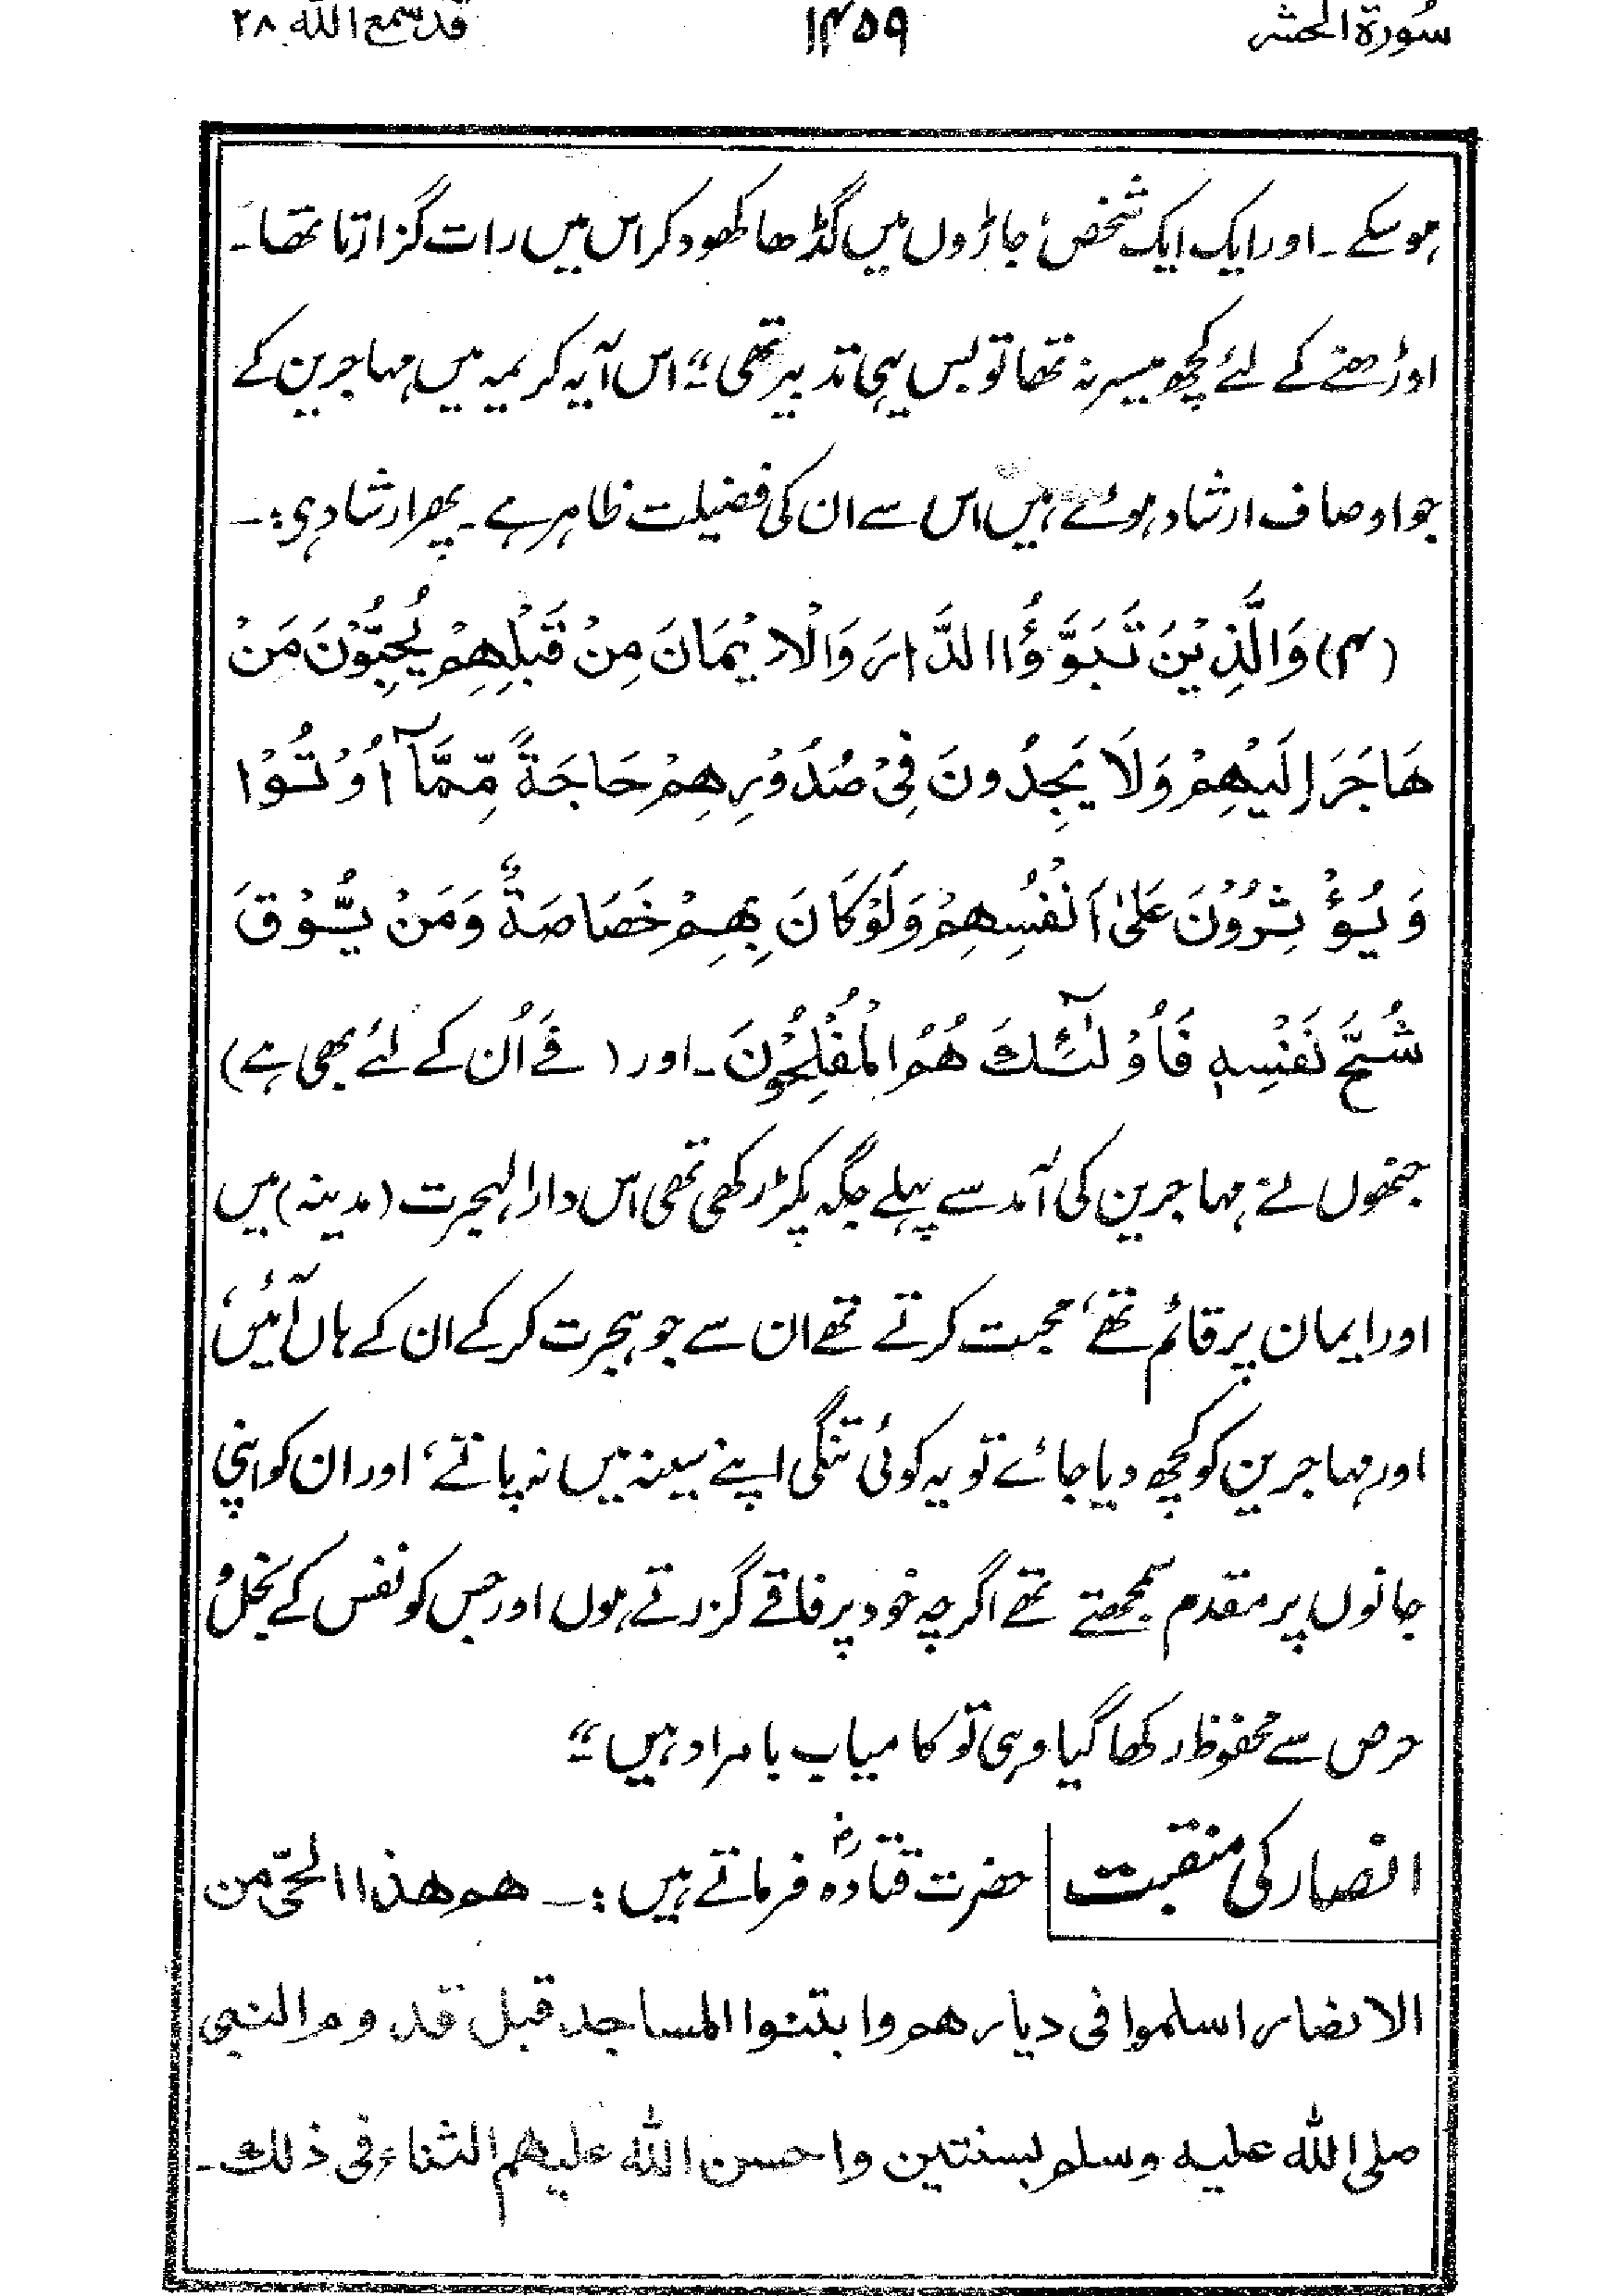 سُورۃ الحشر ۱۴۵۹ قد سمع اللہ ۲۸
ہوسکے۔ اور ایک ایک شخص جاڑوں میں گڈھا کھود کر اس میں رات گزارتا تھا۔
اوڑھنے کے لئے کچھ میسر نہ تھا تو بس یہی تدبیر تھی“۔ اس آیہ کریمہ میں مہاجرین کے
جو اوصاف ارشاد ہوئے ہیں اس سے ان کی فضیلت ظاہر ہے۔ پھر ارشاد ہی:۔
(۴) وَالَّذِيْنَ تَبَوَّؤُا الدَّارَ وَالْاِيْمَانَ مِنْ قَبْلِهِمْ يُحِبُّوْنَ مَنْ
هَاجَرَ اِلَيْهِمْ وَلَا يَجِدُونَ فِيْ صُدُوْرِهِمْ حَاجَةً مِّمَّآ اُوْتُوْا
وَيُؤْثِرُوْنَ عَلٰى اَنْفُسِهِمْ وَلَوْ كَانَ بِهِمْ خَصَاصَةٌ وَمَنْ يُّوْقَ
شُحَّ نَفْسِهٖ فَاُوْلٰٓئِكَ هُمُ الْمُفْلِحُوْنَ۔ اور (فے اُن کے لئے بھی ہے)
جنھوں نے مہاجرین کی آمد سے پہلے جگہ پکڑ رکھی تھی اس دارالہجرت (مدینہ) میں
اور ایمان پر قائم تھے، محبت کرتے تھے ان سے جو ہجرت کرکے ان کے ہاں آئیں،
اور مہاجرین کو کچھ دیا جائے تو یہ کوئی تنگی اپنے سینہ میں نہ پاتے، اور ان کو اپنی
جانوں پر مقدم سمجھتے تھے اگرچہ خود پر فاقے گزرتے ہوں اور جس کو نفس کے بخل و
حرص سے محفوظ رکھا گیا وہی تو کامیاب بامراد ہیں“۔
انصار کی منقبت حضرت قتادہؓ فرماتے ہیں:۔ ھم ھذا الحیّ من
الانصار اسلموا فی دیارھم وابتنوا المساجد قبل قدوم النبی
صلی اللہ علیہ وسلم بسنتین واحسن اللہ علیھم الثناء فی ذلک۔